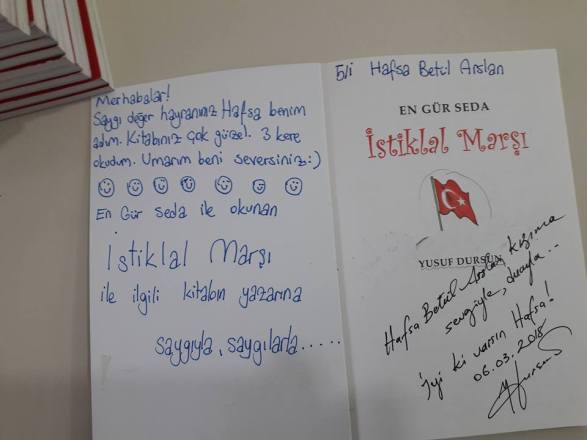 Merhabalar!
Saygı değer hayranınız Hafsa benim
adım. Kitabınız çok güzel. 3 kere
okudum. Umarım beni seversiniz:)
En Gür Seda ile okunan
İstiklal Marşı
ile ilgili kitabın yazarına
saygıyla, saygılarla.....
5/i Hafsa Betül Arslan
EN GÜR SEDA
İstiklal Marşı
YUSUF DURSUN
Hafsa Betül Arslan kızıma
sevgiyle, duayla...
İyi ki varsın Hafsa!
06.03.2018